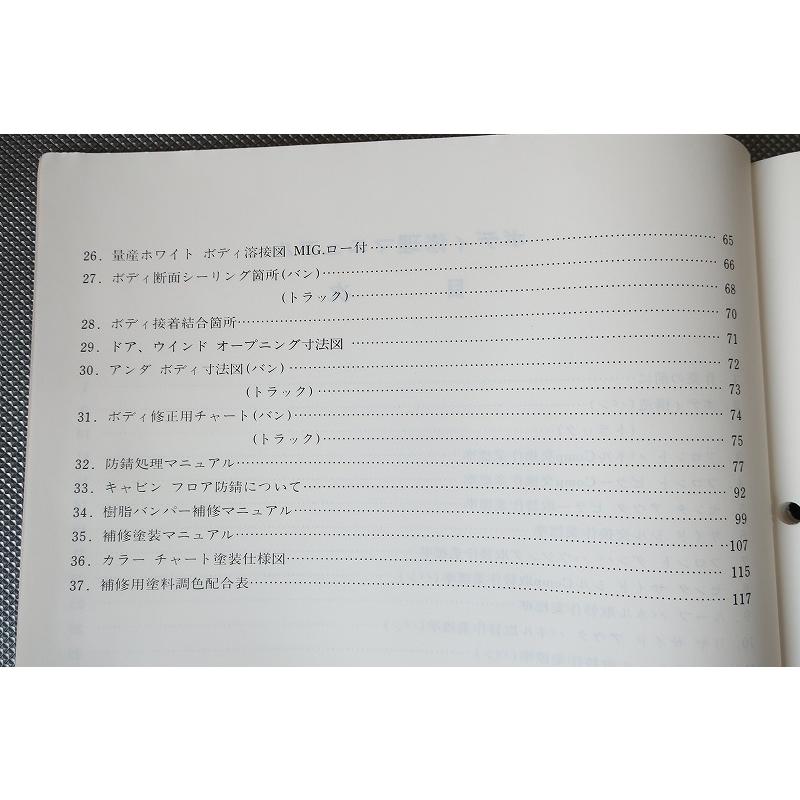 26. 量産ホワイト ボディ溶接図 MIG.ロー付 65
27. ボディ断面シーリング箇所(バン) 66
(トラック) 68
28. ボディ接着結合箇所 70
29. ドア、ウインド オープニング寸法図 71
30. アンダ ボディ寸法図(バン) 72
(トラック) 73
31. ボディ修正用チャート(バン) 74
(トラック) 75
32. 防錆処理マニュアル 77
33. キャビン フロア防錆について 92
34. 樹脂バンパー補修マニュアル 99
35. 補修塗装マニュアル 107
36. カラー チャート塗装仕様図 115
37. 補修用塗料調色配合表 117